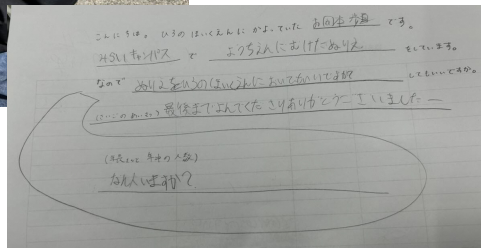 こんにちは。ひろのほいくえんにかよっていた です。
みらいキャンパス で ようちえんにむけたぬりえ をしています。
なので ぬりえをひろのほいくえんにおいてもいいですか してもいいですか。
最後までよんでくださりありがとうございました
なん人いますか?